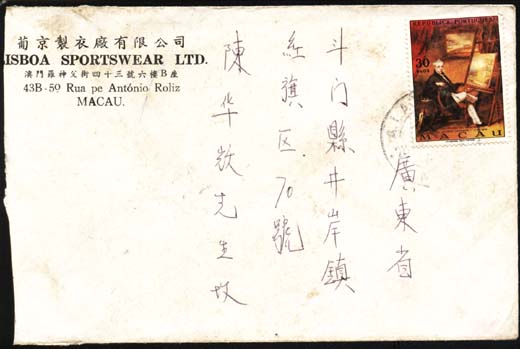 葡京製衣廠有限公司
LISBOA SPORTSWEAR LTD.
澳門羅神父街四十三號六樓B座
43B-59 Rua pe António Roliz
MACAU.
REPUBLICA PORTUGUESA
30
MACAU
廣東省
斗门縣井岸鎮
红旗区70號
陳华敬先生收